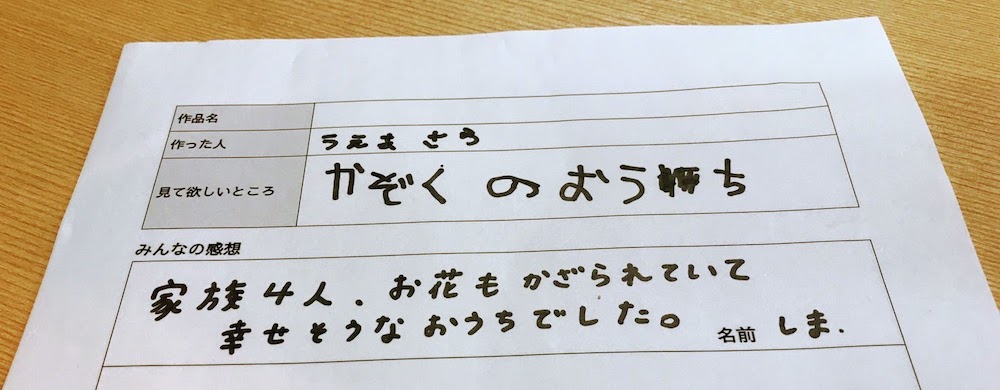 作品名
作った人
見て欲しいところ かぞく の おう ち
みんなの感想
家族4人、お花もかざられていて
幸せそうなおうちでした。 名前 しま.